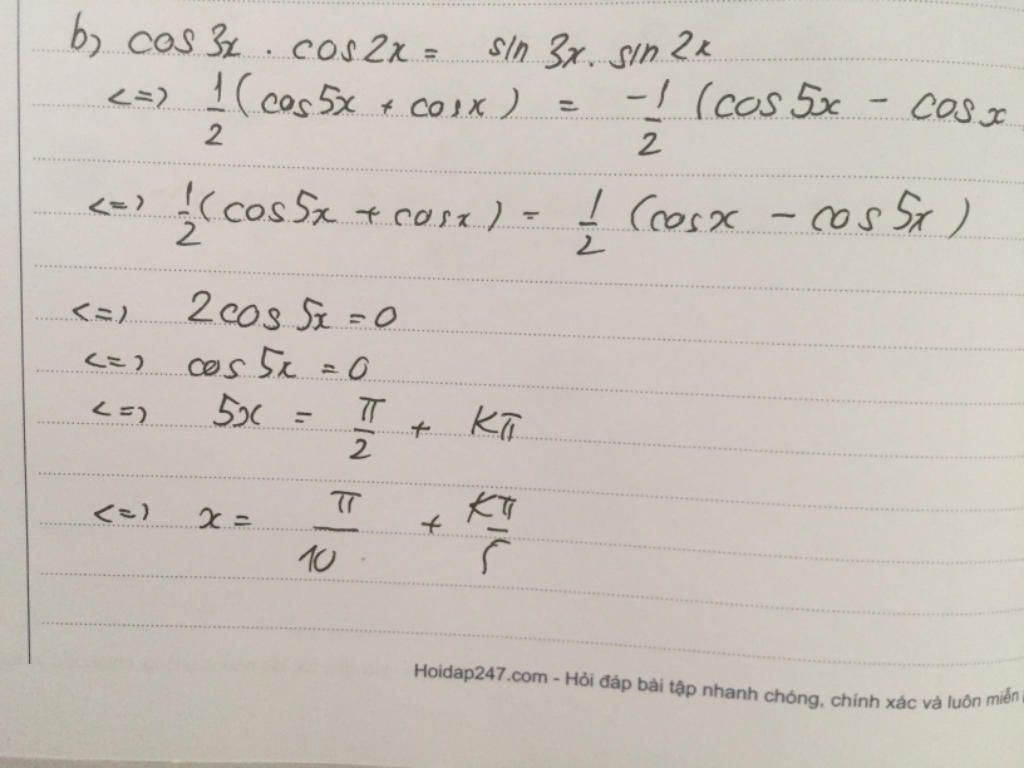 b) cos 3x . cos 2x = sin 3x. sin 2x
<=> 1/2 (cos 5x + cos x) = -1/2 (cos 5x - cos x
<=> 1/2 (cos 5x + cos x) = 1/2 (cos x - cos 5x)
<=> 2 cos 5x = 0
<=> cos 5x = 0
<=> 5x = π/2 + Kπ
<=> x = π/10 + Kπ/5
Hoidap247.com - Hỏi đáp bài tập nhanh chóng, chính xác và luôn miễn